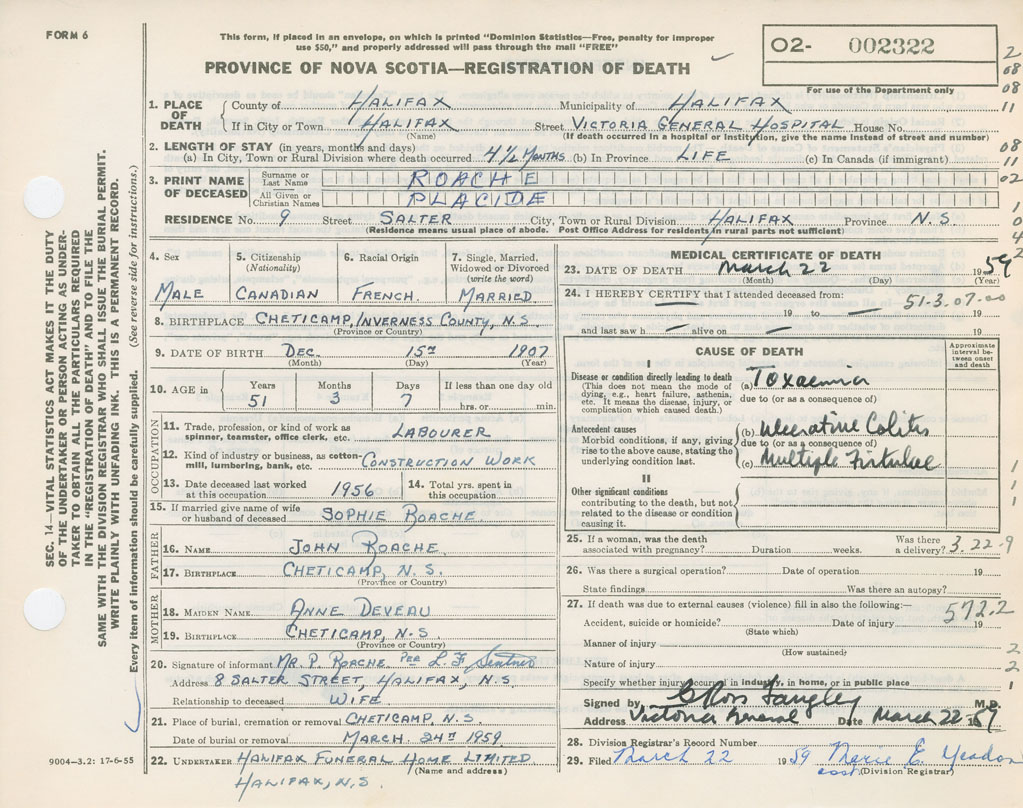 FORM 6
This form, if placed in an envelope, on which is printed "Dominion Statistics—Free, penalty for improper
use $50," and properly addressed will pass through the mail "FREE"
PROVINCE OF NOVA SCOTIA—REGISTRATION OF DEATH
O2- 002322
For use of the Department only
2
08
08
11
08
11
02
1
0
4
2
SEC. 14—VITAL STATISTICS ACT MAKES IT THE DUTY
OF THE UNDERTAKER OR PERSON ACTING AS UNDER-
TAKER TO OBTAIN ALL THE PARTICULARS REQUIRED
IN THE "REGISTRATION OF DEATH" AND TO FILE THE
SAME WITH THE DIVISION REGISTRAR WHO SHALL ISSUE THE BURIAL PERMIT.
WRITE PLAINLY WITH UNFADING INK. THIS IS A PERMANENT RECORD.
Every item of information should be carefully supplied. (See reverse side for instructions.)
1. PLACE OF DEATH County of HALIFAX Municipality of HALIFAX
If in City or Town HALIFAX Street VICTORIA GENERAL HOSPITAL House No.
(Name) (If death occurred in a hospital or institution, give the name instead of street and number)
2. LENGTH OF STAY (in years, months and days)
(a) In City, Town or Rural Division where death occurred 4 1/2 MONTHS (b) In Province LIFE (c) In Canada (if immigrant)
3. PRINT NAME OF DECEASED Surname or Last Name ROACHE
All Given or Christian Names PLACIDE
RESIDENCE No. 9 Street SALTER City, Town or Rural Division HALIFAX Province N.S.
(Residence means usual place of abode. Post Office Address for residents in rural parts not sufficient)
4. Sex 5. Citizenship (Nationality) 6. Racial Origin 7. Single, Married, Widowed or Divorced (write the word)
MALE CANADIAN FRENCH. MARRIED.
8. BIRTHPLACE CHETICAMP, INVERNESS COUNTY, N.S.
(Province or Country)
9. DATE OF BIRTH DEC. 15TH 1907
(Month) (Day) (Year)
10. AGE in Years Months Days If less than one day old
51 3 7 hrs. or min.
OCCUPATION
11. Trade, profession, or kind of work as spinner, teamster, office clerk, etc. LABOURER
12. Kind of industry or business, as cotton-mill, lumbering, bank, etc. CONSTRUCTION WORK
13. Date deceased last worked at this occupation 1956 14. Total yrs. spent in this occupation
15. If married give name of wife or husband of deceased SOPHIE ROACHE.
FATHER
16. NAME JOHN ROACHE.
17. BIRTHPLACE CHETICAMP, N.S.
(Province or Country)
MOTHER
18. MAIDEN NAME ANNE DEVEAU
19. BIRTHPLACE CHETICAMP, N.S
(Province or Country)
20. Signature of informant MR. P. ROACHE PER L. F.
Address 8 SALTER STREET, HALIFAX, N.S
Relationship to deceased WIFE
21. Place of burial, cremation or removal CHETICAMP, N.S.
Date of burial or removal MARCH. 24TH 1959
22. UNDERTAKER HALIFAX FUNERAL HOME LIMITED.
(Name and address)
HALIFAX, N.S.
9004—3.2: 17-6-55
MEDICAL CERTIFICATE OF DEATH
23. DATE OF DEATH March 22 1959
(Month) (Day) (Year)
24. I HEREBY CERTIFY that I attended deceased from: 51-3.07-00
19 to — 19
and last saw h — alive on — 19
CAUSE OF DEATH
Approximate interval between onset and death
I
Disease or condition directly leading to death
(This does not mean the mode of dying, e.g., heart failure, asthenia, etc. It means the disease, injury, or complication which caused death.)
(a) Toxaemia
due to (or as a consequence of)
Antecedent causes
Morbid conditions, if any, giving rise to the above cause, stating the underlying condition last.
(b) Ulcerative Colitis
due to (or as a consequence of)
(c) Multiple Fistulae
II
Other significant conditions
contributing to the death, but not related to the disease or condition causing it.
1
1
1
25. If a woman, was the death associated with pregnancy? Duration weeks. Was there a delivery? 3.22-9
26. Was there a surgical operation? Date of operation 19
State findings Was there an autopsy?
27. If death was due to external causes (violence) fill in also the following:— 572.2
Accident, suicide or homicide? Date of injury 19
(State which)
Manner of injury 2
(How sustained)
Nature of injury 2
Specify whether injury occurred in industry, in home, or in public place 1
Signed by M.D.
Address Victoria General Date March 22 1959
28. Division Registrar's Record Number
29. Filed March 22 1959 Marie E.
(Division Registrar)